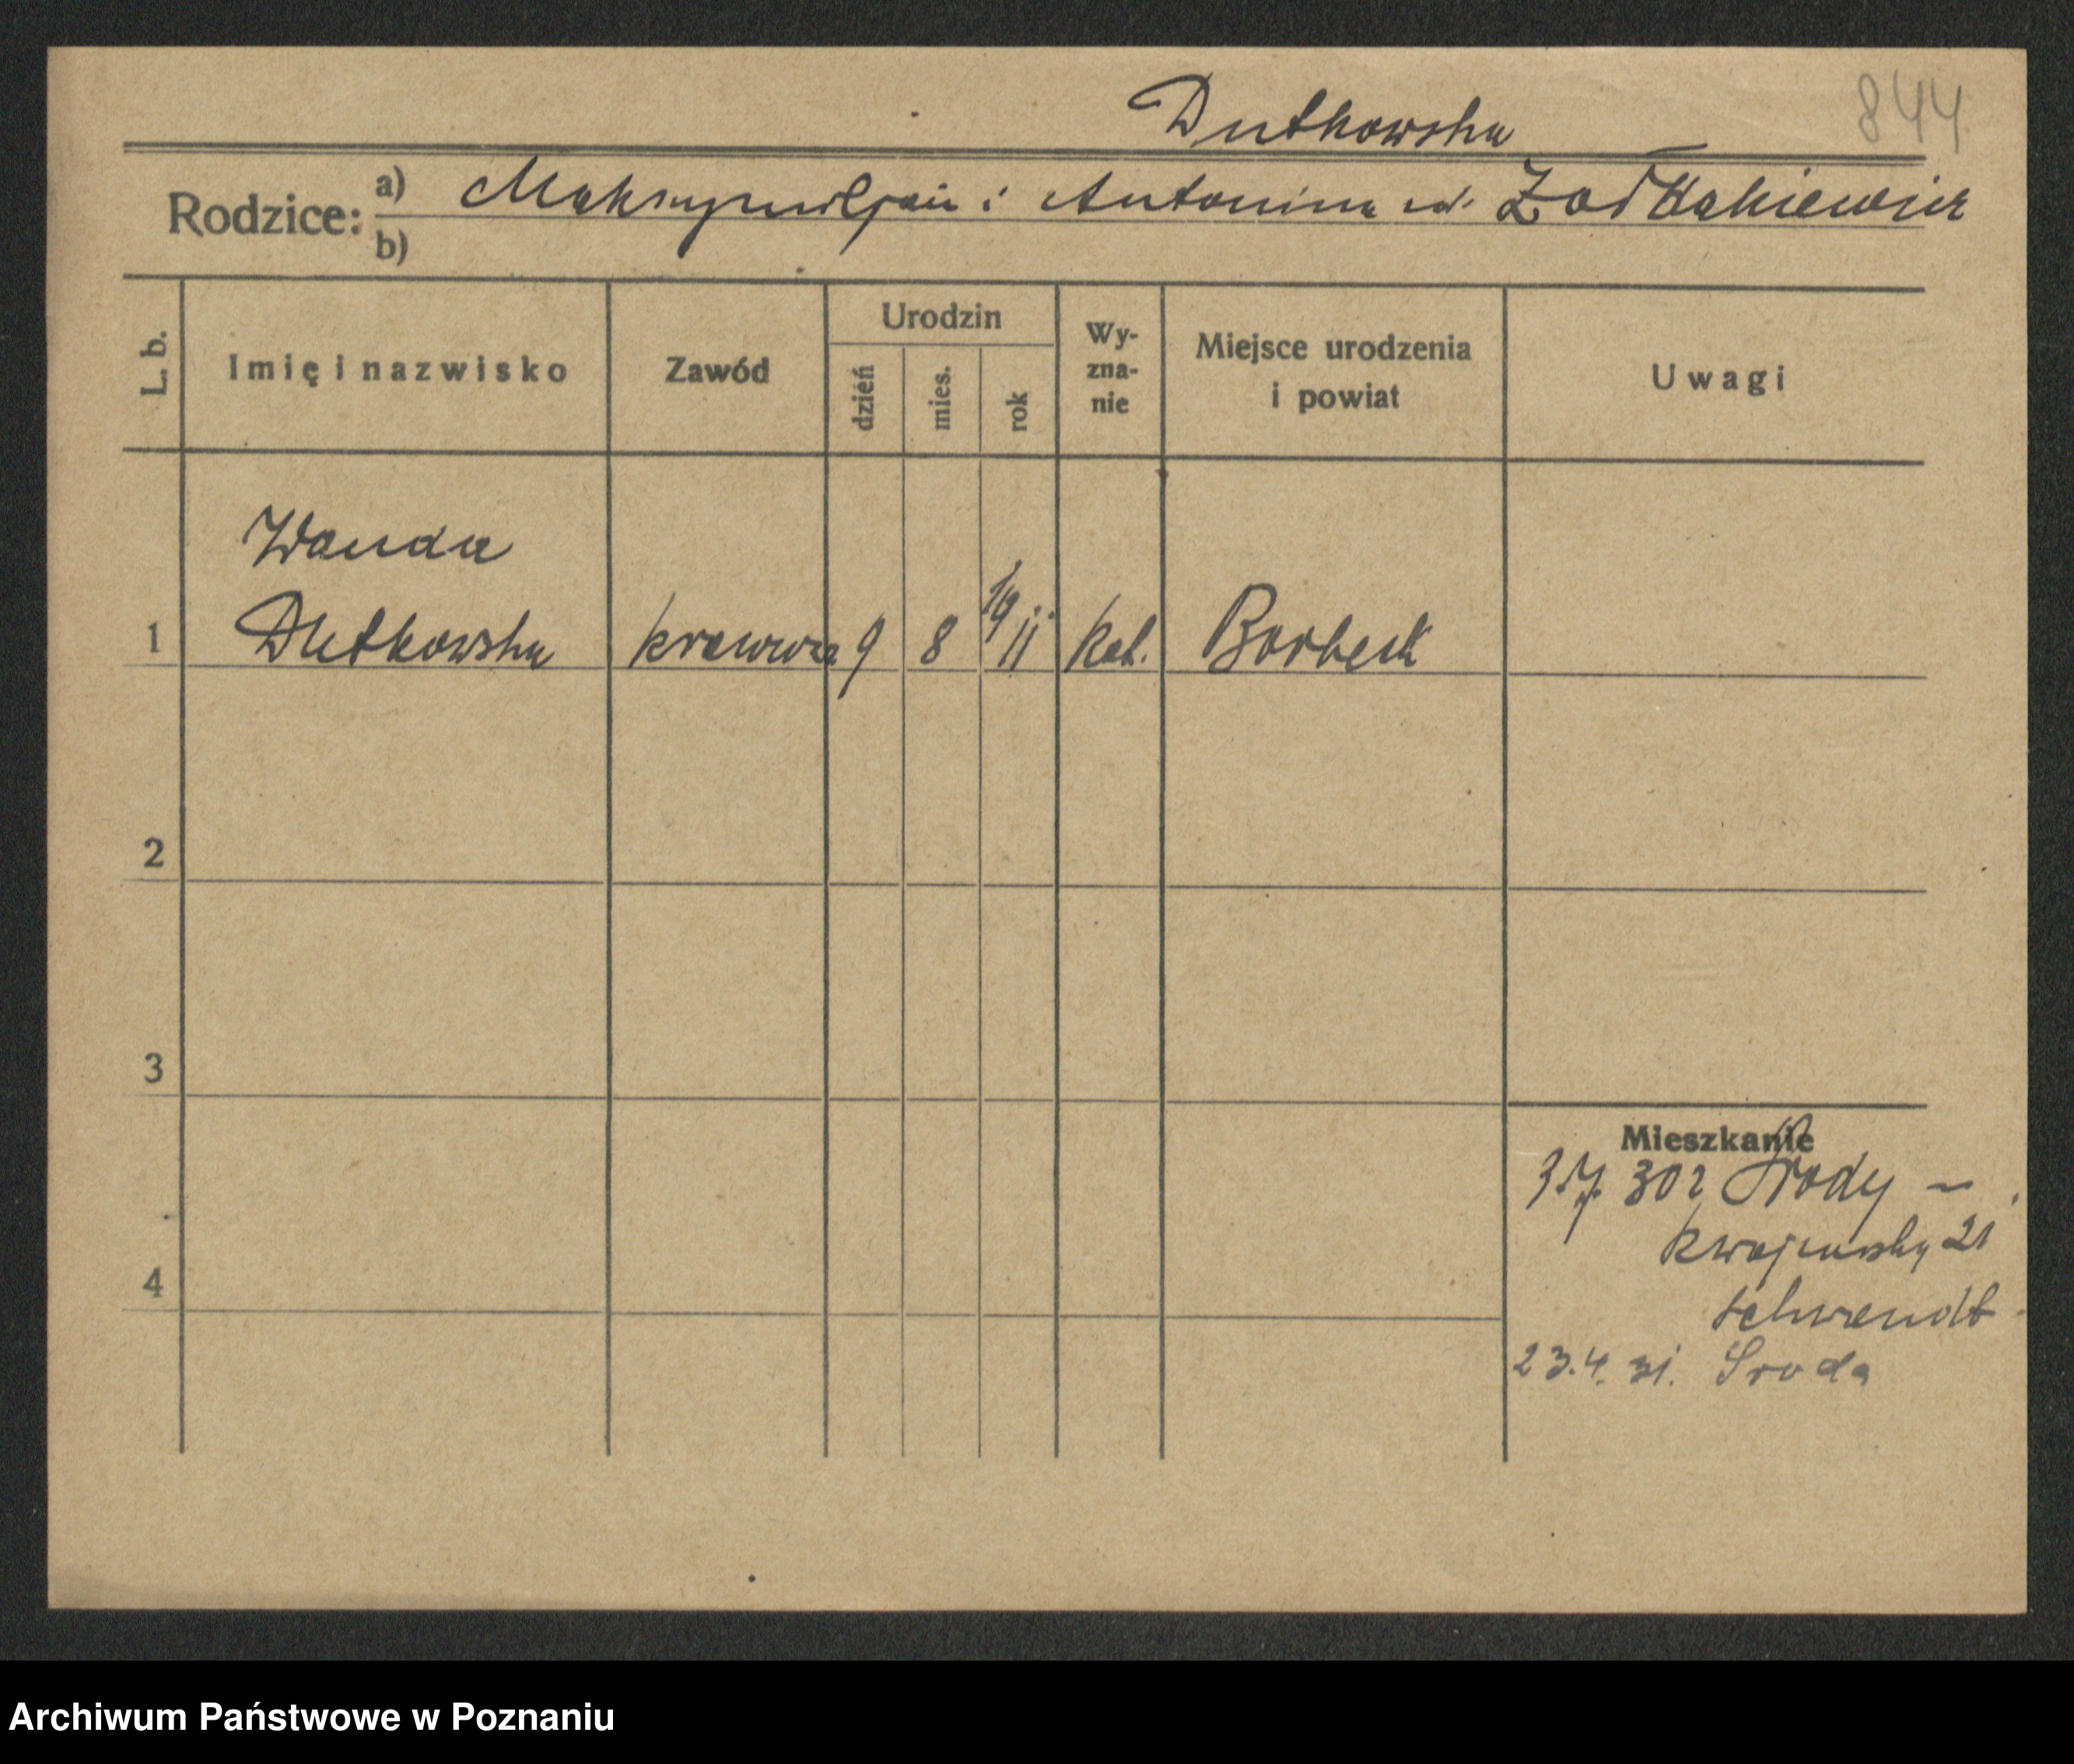 Dutkowska 844
Rodzice: a) Maksymiljan i Antonina z d.
b)
L. b. Imię i nazwisko Zawód Urodzin dzień mies. rok Wy-zna-nie Miejsce urodzenia i powiat Uwagi
Wanda
1 Dutkowska krawcowa 9 8 1911 Kat. Borbeck
2
3
Mieszkanie
3.7. 30 z Środy –
21
4 Schwendt
23.4. 31. Sroda
Archiwum Państwowe w Poznaniu